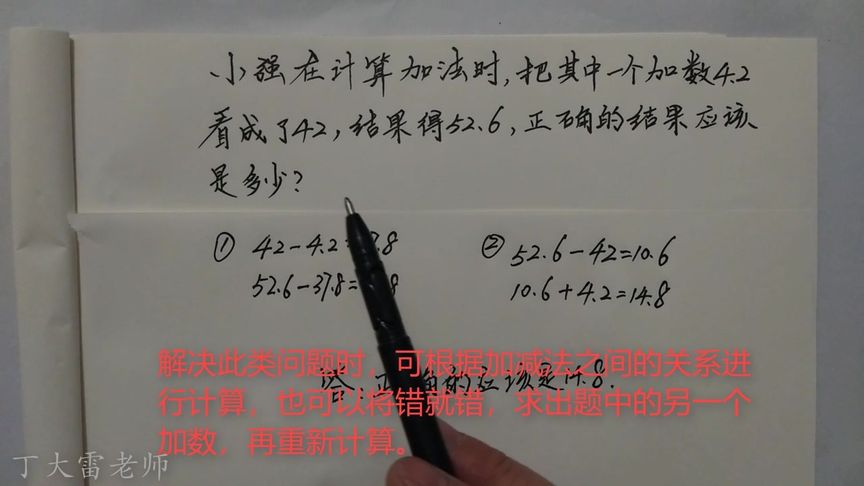 小强在计算加法时,把其中一个加数4.2
看成了42,结果得52.6,正确的结果应该
是多少?
① 42-4.2= .8
52.6-37.8= 8
② 52.6-42=10.6
10.6+4.2=14.8
答:正确的应该是14.8.
解决此类问题时,可根据加减法之间的关系进
行计算,也可以将错就错,求出题中的另一个
加数,再重新计算。
丁大雷老师